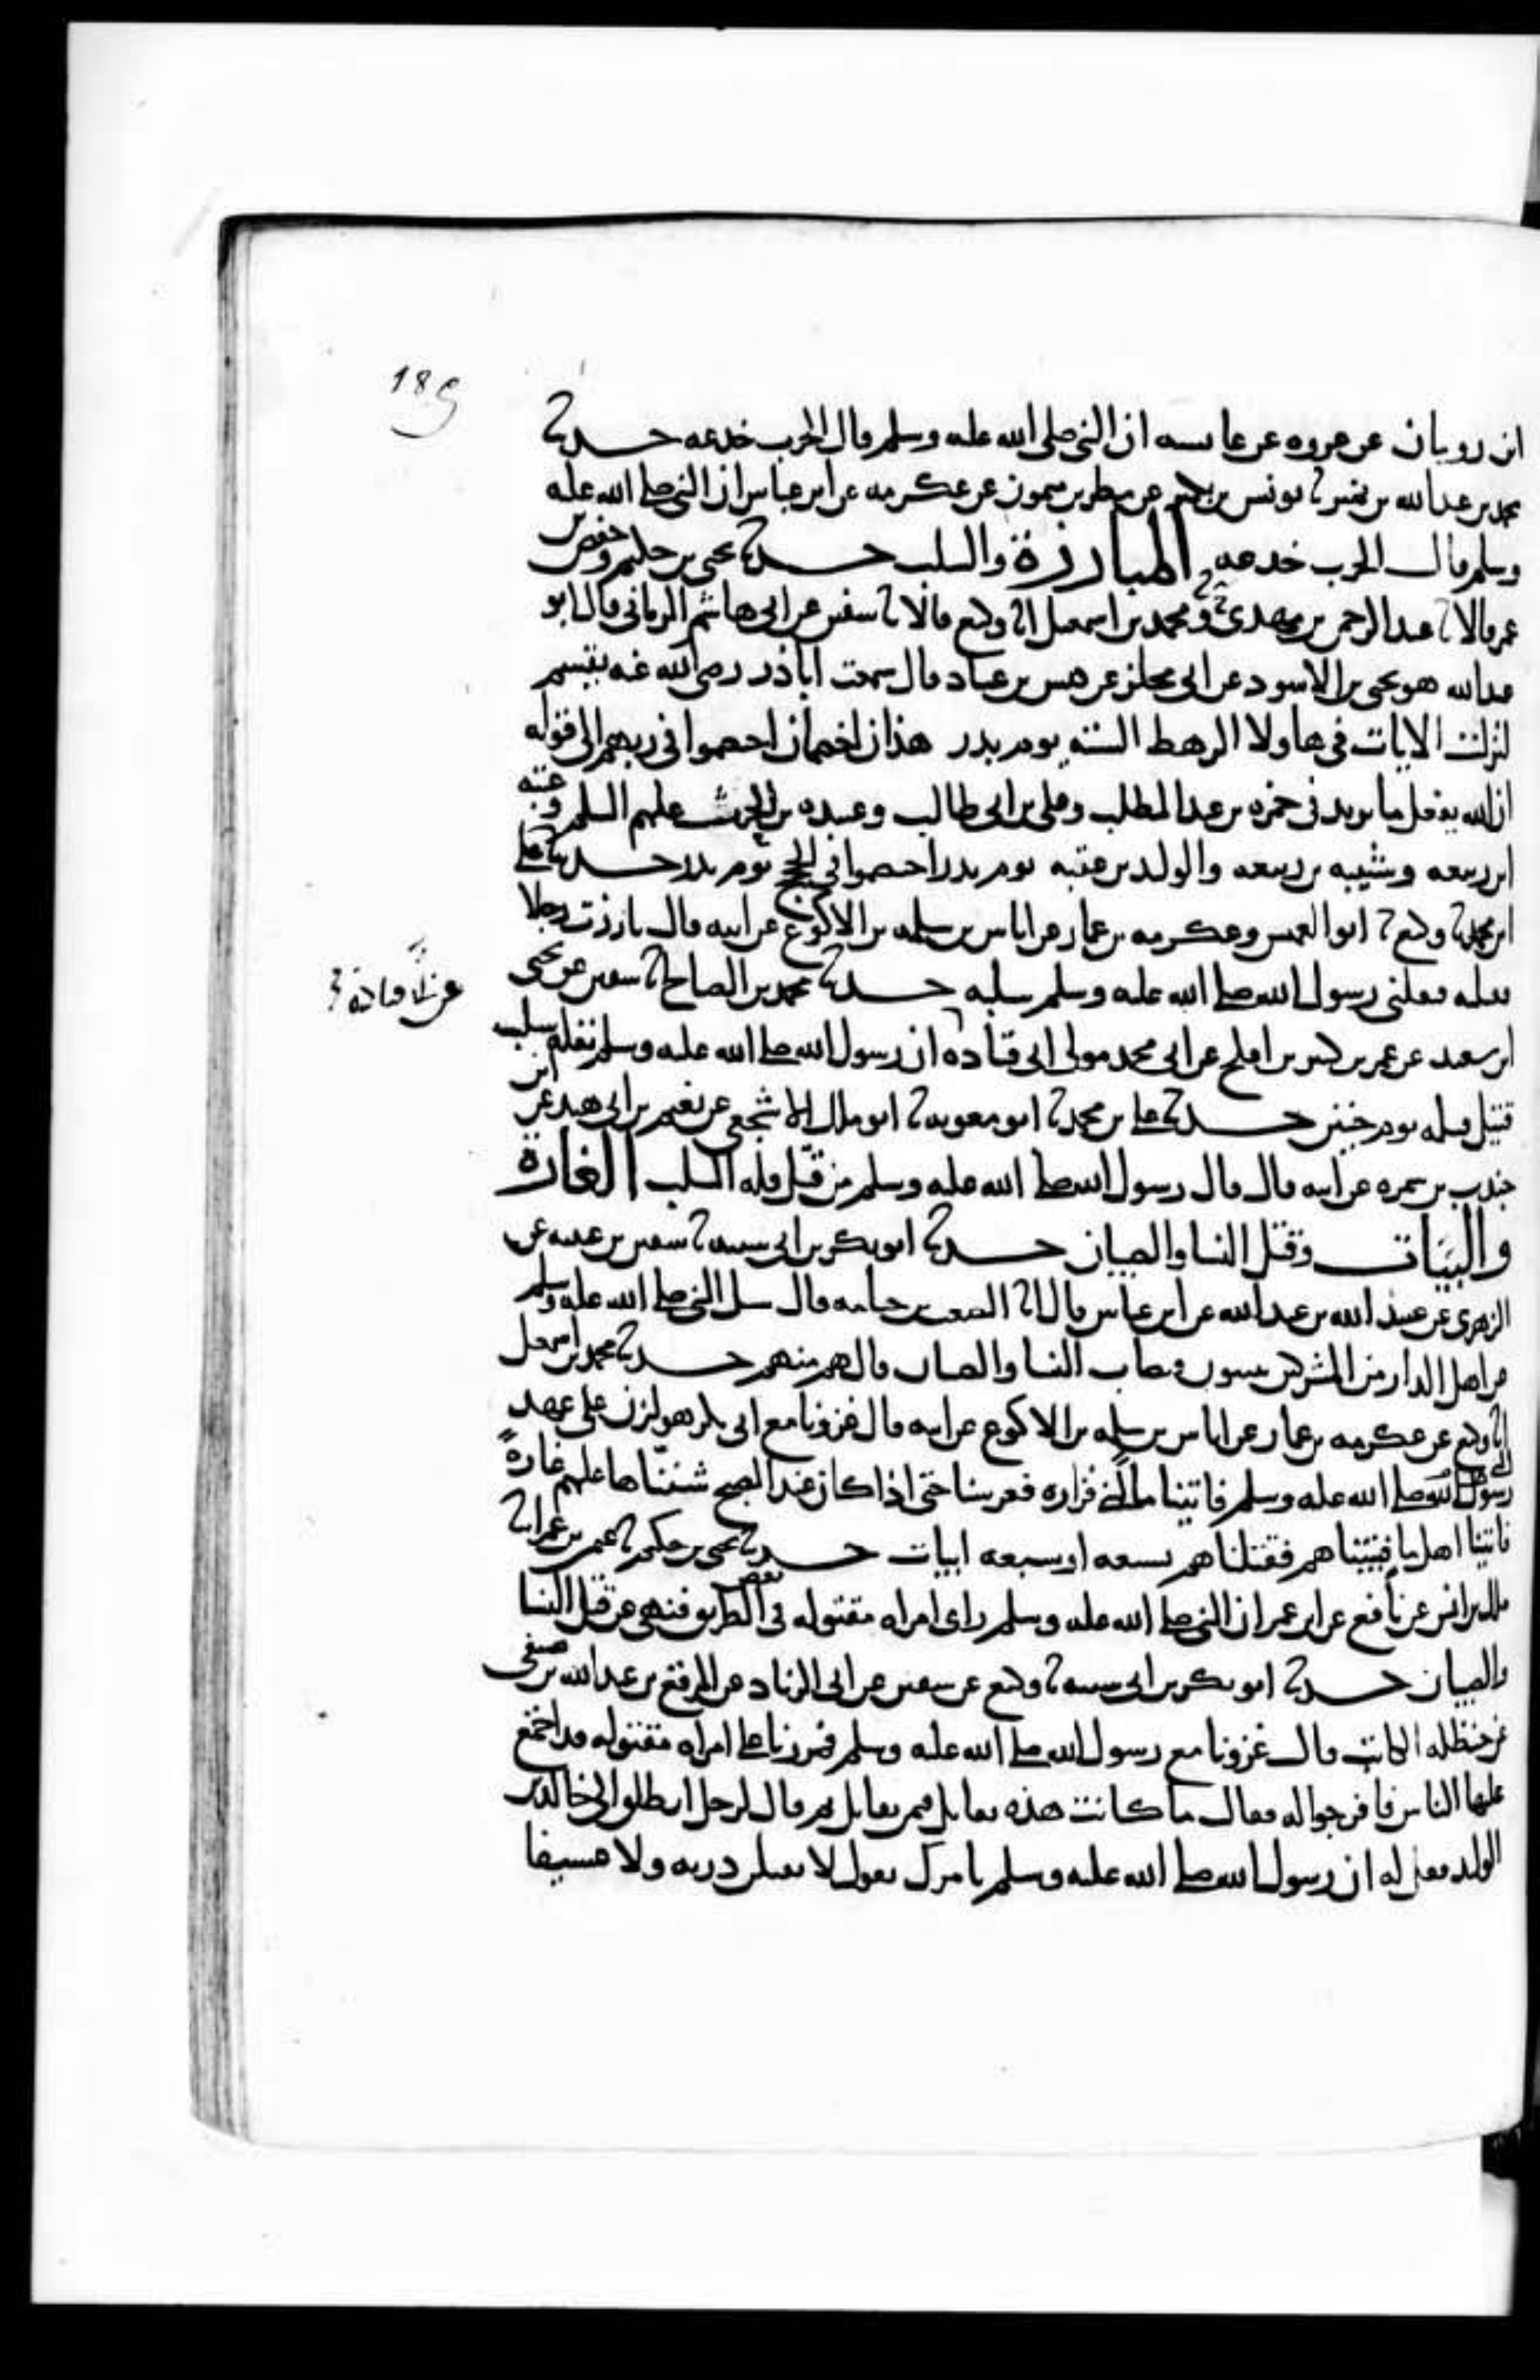 189
ابن رومان عن عروه عن عايسه ان النبي صلى الله عليه وسلم قال الحرب خدعه حدثنا
محمد بن عبد الله بن نمير ثنا يونس بن بكير عن مطر بن ميمون عن عكرمه عن ابن عباس ان النبي صلى الله عليه
وسلم قال الحرب خدعه المبارزة والسلب حدثنا يحيى بن حكيم وحفص بن
عمر قالا ثنا عبد الرحمن بن مهدي ح ومحمد بن اسمعيل انا وكيع قالا ثنا سفين عن ابي هاشم الرماني قال ابو
عبد الله هو يحيى بن الاسود عن ابي مجلز عن قيس بن عباد قال سمعت اباذر رضي الله عنه يقسم
لنزلت الايات في هاولا الرهط الستة يوم بدر هذان خصمان اختصموا في ربهم الى قوله
ان الله يفعل ما يريد في حمزه بن عبد المطلب وعلي بن ابي طالب وعبيده بن الحرث عليهم السلم وعتبه
ابن ربيعه وشيبه بن ربيعه والوليد بن عتبه يوم بدر اختصموا في الحجج يوم بدر حدثنا علي
ابن محمد ثنا وكيع ثنا ابو العميس وعكرمه بن عمار عن اياس بن سلمه بن الاكوع عن ابيه قال بارزت رجلا
فقتلته فنفلني رسول الله صلى الله عليه وسلم سلبه حدثنا محمد بن الصباح ثنا سفين عن يحيى
ابن سعيد عن عمر بن كثير بن افلح عن ابي محمد مولى ابي قتاده ان رسول الله صلى الله عليه وسلم نفله سلب
عن ابي قتادة
قتيل قتله يوم حنين حدثنا علي بن محمد ثنا ابو معويه ثنا ابو ملك الاشجعي عن نعيم بن ابي هند عن ابن
جندب بن سمره عن ابيه قال قال رسول الله صلى الله عليه وسلم من قتل فله السلب الغارة
والبيات وقتل النسا والصبيان حدثنا ابو بكر بن ابي شيبه ثنا سفين بن عيينه عن
الزهري عن عبيد الله بن عبد الله عن ابن عباس قال انا الصعب بن جثامه قال سل النبي صلى الله عليه وسلم
عن اهل الدار من المشركين يبيتون فيصاب النسا والصبيان قال هم منهم حدثنا محمد بن اسمعيل
انا وكيع عن عكرمه بن عمار عن اياس بن سلمه بن الاكوع عن ابيه قال غزونا مع ابي بكر هوازن على عهد
رسول الله صلى الله عليه وسلم فاتينا ما لبني فزاره فعرسنا حتى اذا كان عند الصبح شنناها عليهم غارة
فاتينا اهل ما فبيتناهم فقتلناهم تسعه او سبعه ابيات حدثنا يحيى بن حكيم ثنا عثمن بن عمر انا
ملك بن انس عن نافع عن ابن عمر ان النبي صلى الله عليه وسلم راى امراه مقتوله في بعض الطريق فنهى عن قتل النسا
والصبيان حدثنا ابو بكر بن ابي شيبه ثنا وكيع عن سفين عن ابي الزناد عن المرقع بن عبد الله بن صيفي
عن حنظله الكاتب قال غزونا مع رسول الله صلى الله عليه وسلم فمررنا على امراه مقتوله قد اجتمع
عليها الناس فافرجوا له فقال ما كانت هذه تقاتل فيمن يقاتل ثم قال لرجل انطلق الى خالد بن
الوليد فقل له ان رسول الله صلى الله عليه وسلم يامرك يقول لا تقتلن دريه ولا عسيفا